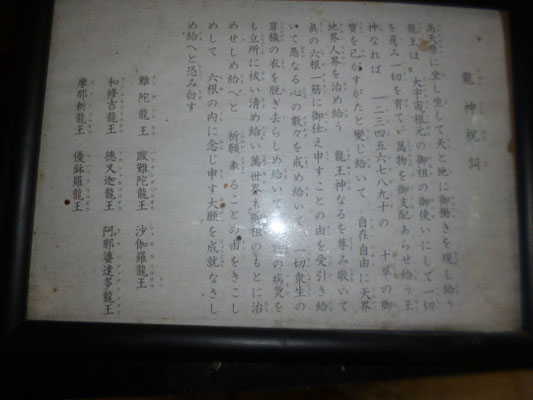 龍神祝詞
高天原に坐し坐して天と地に御働きを現し給う
龍王は 大宇宙根元の御祖の御使いにして一切
を産み一切を育て 萬物を御支配あらせ給う王
神なれば 一二三四五六七八九十の 十種の御
寶を己がすがたと變じ給いて 自在自由に天界
地界人界を治め給う 龍王神なるを尊み敬いて
眞の六根一筋に御仕え申すことの由を受引き給
いて 愚なる心の數々を戒め給いて 一切衆生の
罪穢の衣を脱ぎ去らしめ給いて の病災を
も立所に祓い清め給い 萬世界も御祖のもとに治
めせしめ給へと 祈願奉ることの由をきこし
めして 六根の内に念じ申す大願を成就なさし
め給へと恐み白す
難陀龍王 跋難陀龍王 沙伽羅龍王
和修吉龍王 徳叉迦龍王 阿那婆達多龍王
摩那斯龍王 優鉢羅龍王